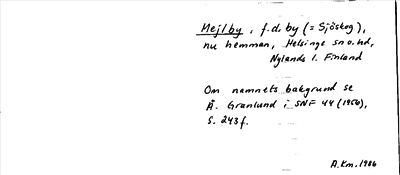 Mejlby, f.d. by (= Sjöskog),
nu hemman, Helsinge sn o. hd,
Nylands l. Finland
Om namnets bakgrund se
Å. Granlund i SNF 44 (1956),
s. 243 f.
A.Km. 1986